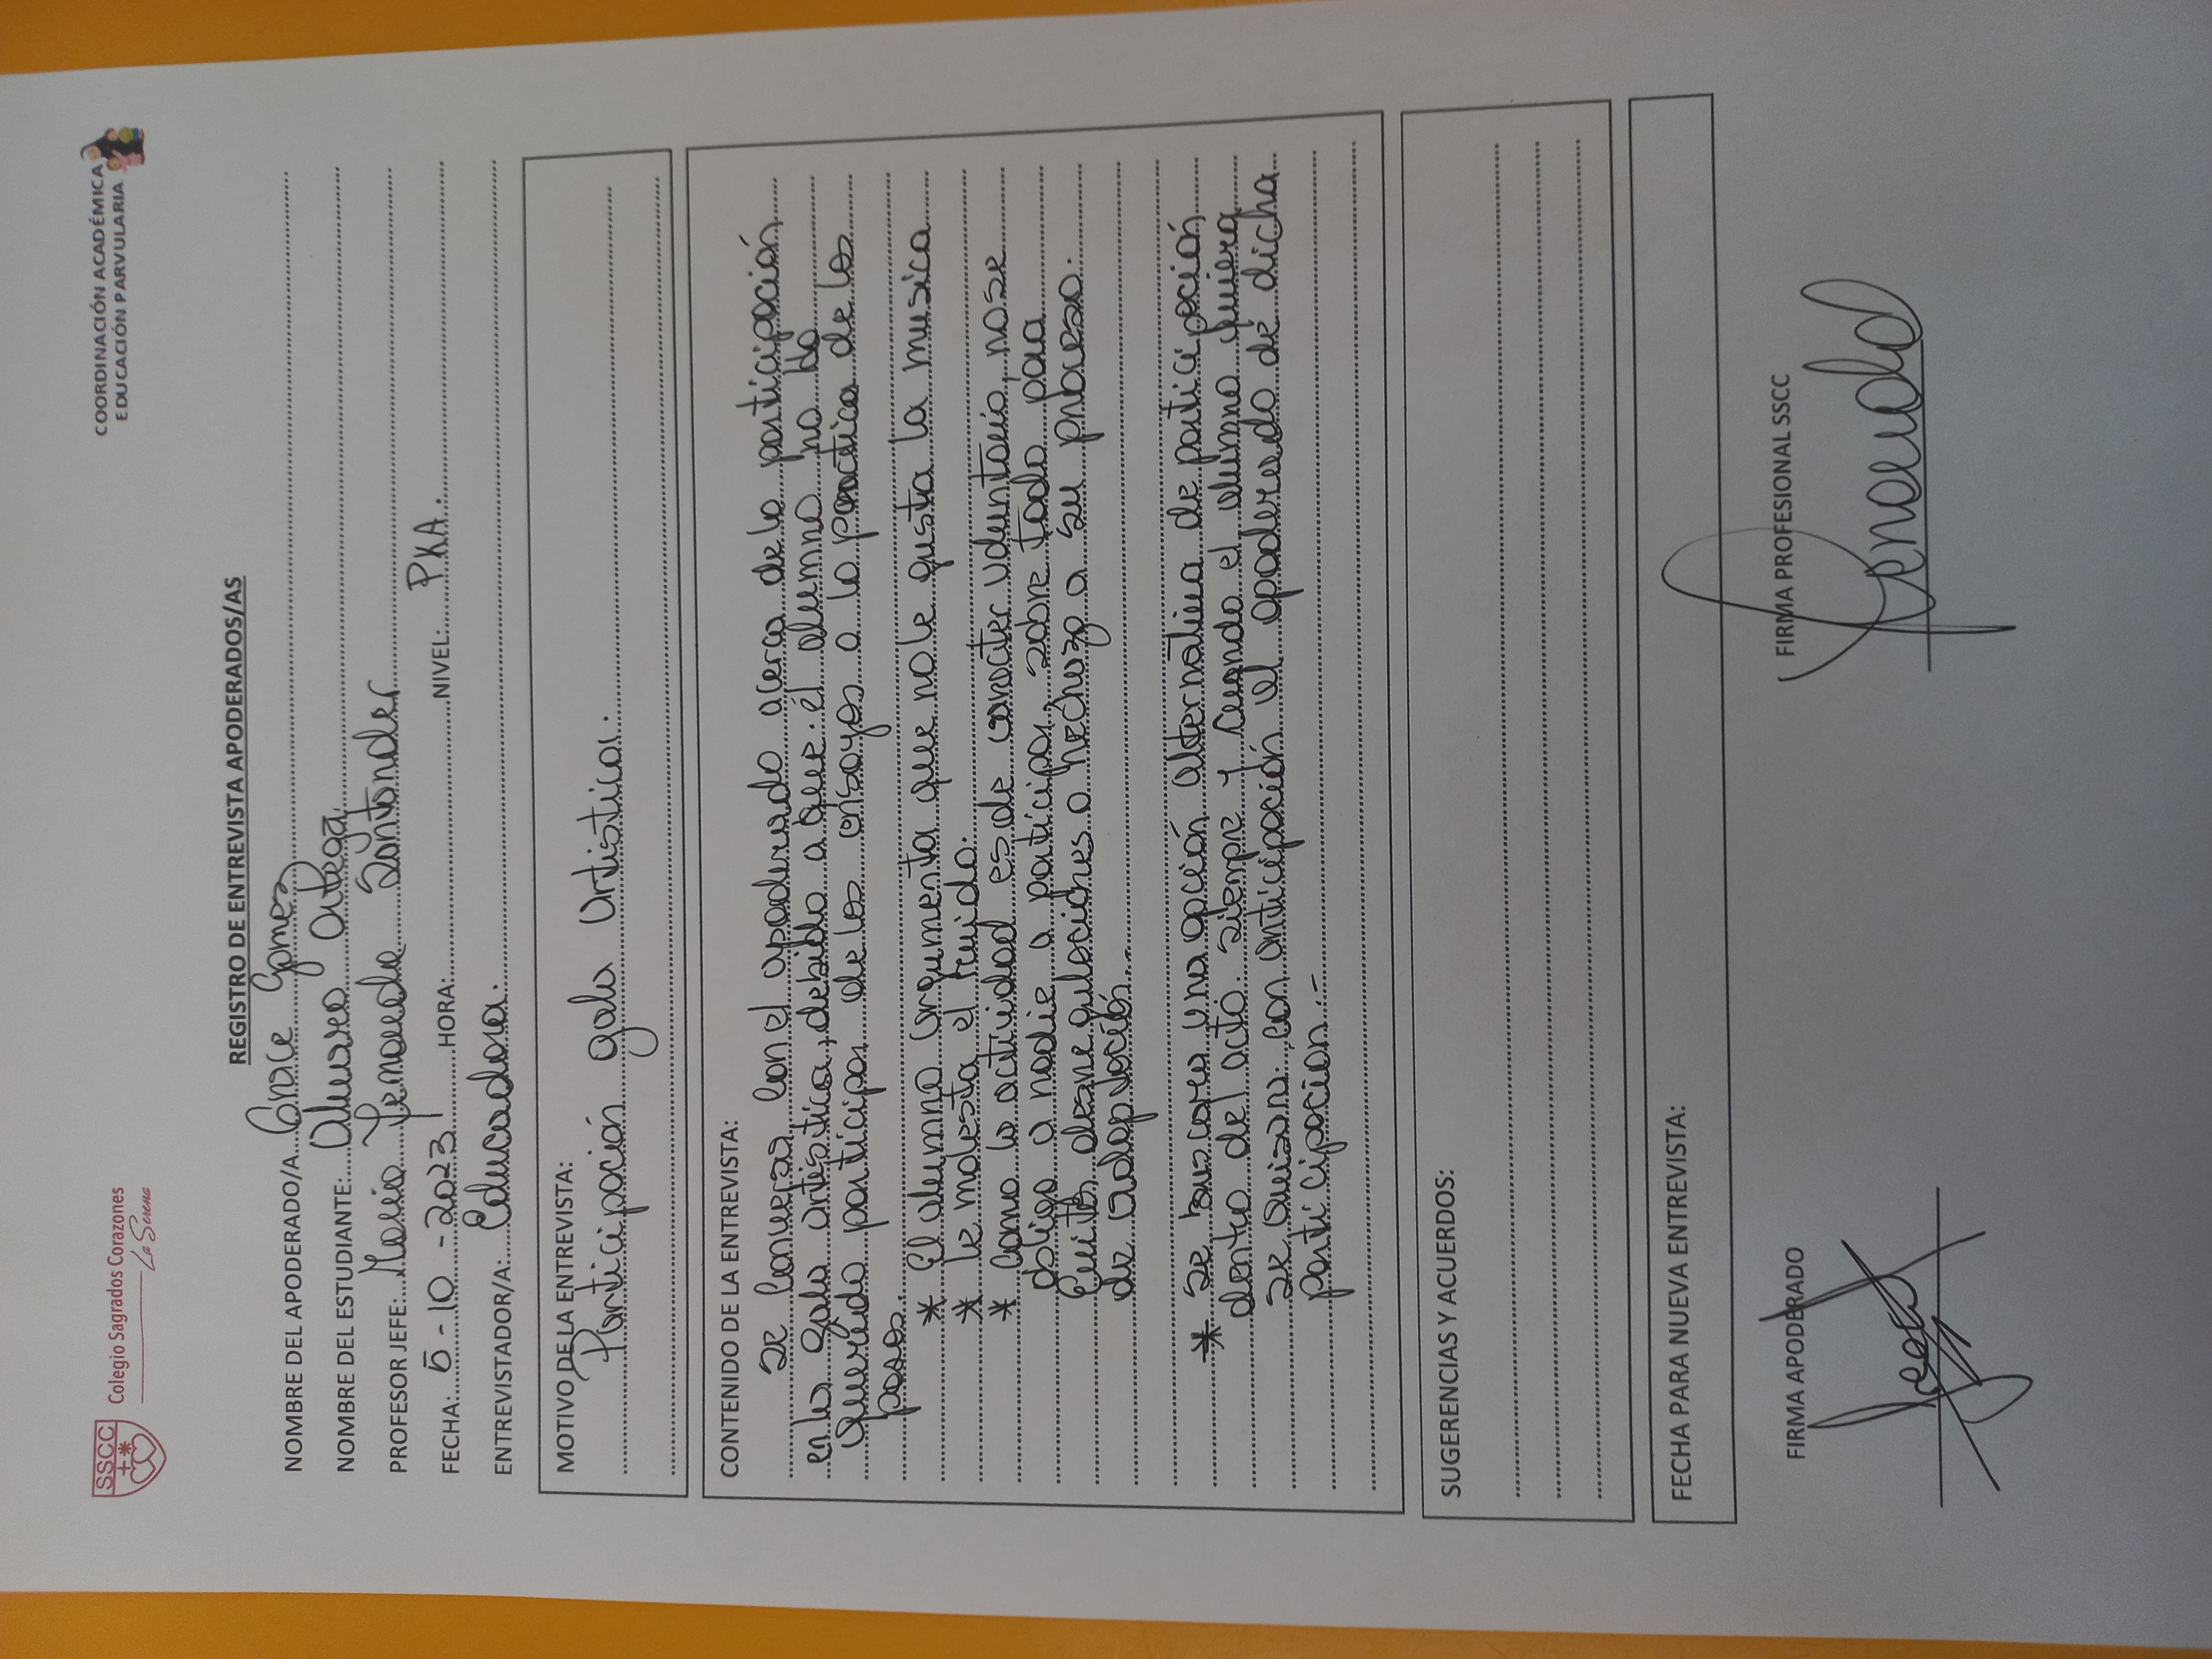 SSCC
Colegio Sagrados Corazones
La Serena
COORDINACIÓN ACADÉMICA
EDUCACIÓN PARVULARIA
REGISTRO DE ENTREVISTA APODERADOS/AS
NOMBRE DEL APODERADO/A Grace Gomez
NOMBRE DEL ESTUDIANTE: Alvaro Ortega
PROFESOR JEFE: María Fernanda Santander
FECHA: 5-10-2023 HORA: NIVEL: PKA.
ENTREVISTADOR/A: Educadora.
MOTIVO DE LA ENTREVISTA:
Participación gala artistica.
CONTENIDO DE LA ENTREVISTA:
Se conversa con el apoderado acerca de la participación
en la gala artística, debido a que el alumno no ha
querido participar de los ensayos o la practica de los
pasos.
* El alumno argumenta que no le gusta la musica
* le molesta el ruido.
* Como la actividad es de caracter voluntario, no se
obliga a nadie a participar, sobre todo para
Evitar desregulaciones o rechazo a su proceso
de adaptación.
* Se buscara una opción alternativa de participación
dentro del acto. siempre y cuando el alumno quiera
se avisara con anticipación al apoderado de dicha
participacion.-
SUGERENCIAS Y ACUERDOS:
FECHA PARA NUEVA ENTREVISTA:
FIRMA APODERADO
FIRMA PROFESIONAL SSCC